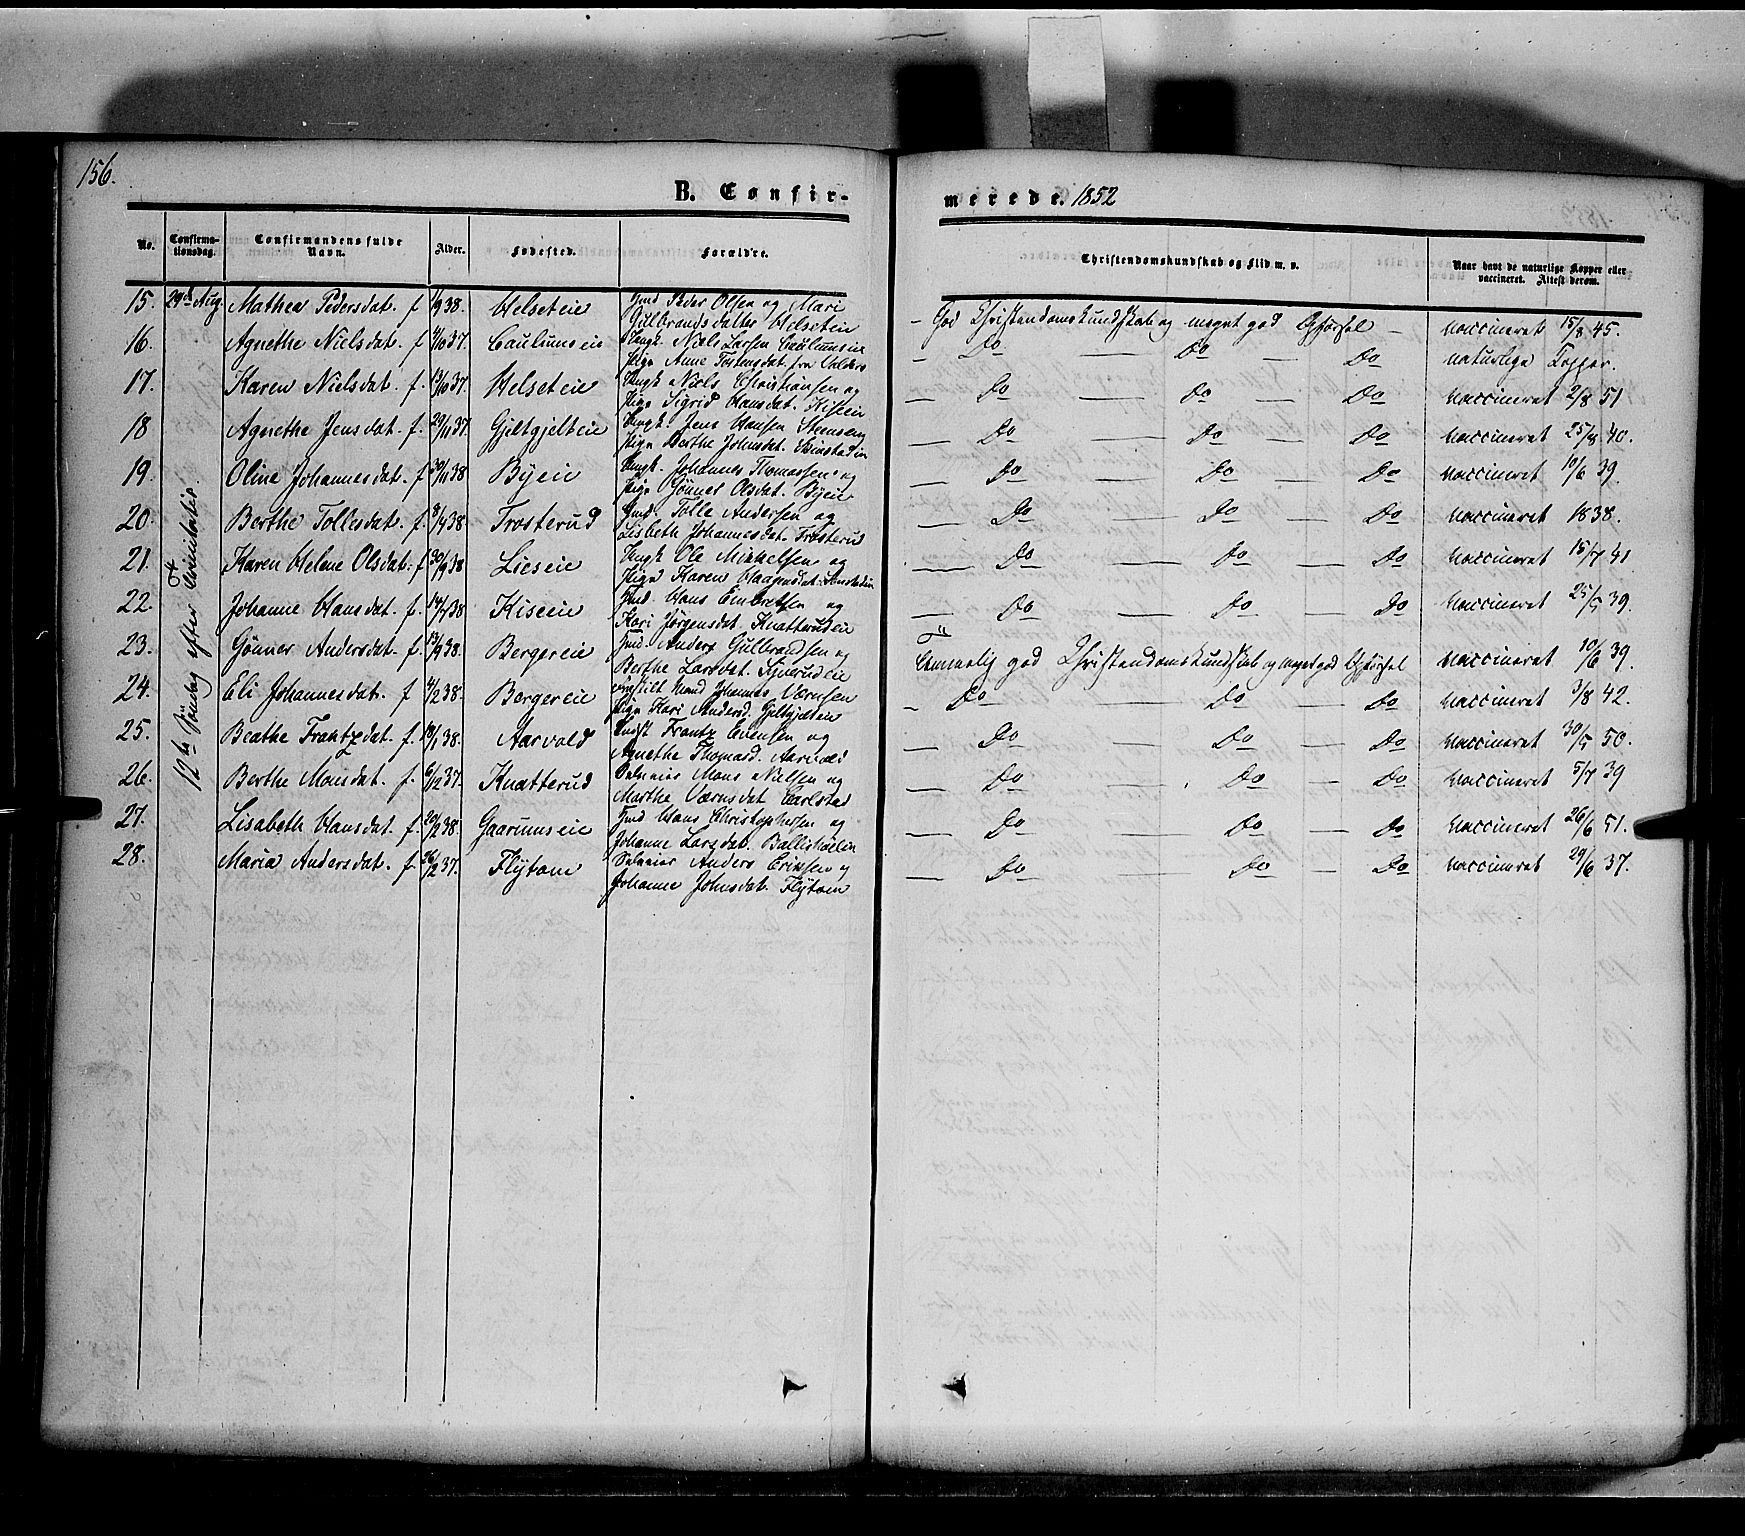 156.
B. Confir-
merede. 1852
No.
Confirma-
tionsdag.
Confirmandens fulde
Navn.
Alder.
Fødested.
Forældre.
Christendomskundskab og Flid m. v.
Naar havt de naturlige Kopper eller
vaccineret. Attest derom.
12te Søndag efter Trinitatis.
15. 29de Aug. Mathea Pedersdat. f 1/9 38. Helseteie Hmd Peder Olsen og Mari
Gulbrandsdatter Helseteie
God Christendomskundskab og meget god Opførsel vaccineret 15/8 45.
16. Agnethe Nielsdat. f. 4/10 37. Caulumseie Ungk. Niels Larsen Caulumseie
Pige Anne Tostensdat. fra Valders
Do Do Do naturlige Kopper.
17. Karen Nielsdat. f. 13/10 37. Helseteie Ungk Niels Christiansen og
Pige Sigrid Hansdat. Kiseeie
Do Do Do vaccineret 2/8 51
18 Agnethe Jensdat. f. 29/11 37. Gjetgjelteie Ungk Jens Hansen Steenseng
Pige Berthe Johnsdat.
Do Do Do vaccineret 25/8 40.
19. Oline Johannesdat. f 30/11 38 Byeie Ungk. Johannes Thomassen og
Pige Gønner Olsdat. Byeie
Do Do Do vaccineret 10/6 39.
20. Berthe Tollesdat. f. 8/4 38. Trosterud Hmd. Tolle Andersen og
Lisbeth Johannesdat. Trosterud
Do Do Do vaccineret 1838.
21. Karen Helene Olsdat. f 30/9 38 Lieseie Ungk Ole Mikkelsen og
Pige Karen Haagensdat.
Do Do Do vaccineret 15/7 41
22. Johanne Hansdat. f. 14/4 38. Kiseeie Hmd. Hans Embretsen og
Kari Jørgensdat. Knatterudeie
Do Do Do vaccineret 25/5 39.
23. Gønner Andersdat. f. 13/9 38. Bergereie Hmd. Anders Gulbrandsen og
Berthe Larsdat.
Temmelig god Christendomskundskab og meget god Opførsel vaccineret 10/6 39.
24. Eli Johannesdat. f 4/2 38. Bergereie Mand Johannes Værnsen
Pige Kari Andersd.
Do Do Do vaccineret 3/8 42.
25. Beathe Frantzdat. f. 18/1 38. Aarvold Frantz Evensen og
Agnethe Thomasd. Aarvold
Do Do Do vaccineret 30/5 50.
26. Berthe Monsdat. f. 6/12 37. Knatterud Selveier Mons Nilsen og
Marthe Værnsdat Carlstad
Do Do Do vaccineret 5/7 39
27. Lisabeth Hansdat. f. 20/2 38. Gaarumseie Hmd Hans Christophersen og
Johanne Larsdat.
Do Do Do vaccineret 26/6 51.
28. Maria Andersdat. f. 26/2 37. Flytom Selveier Anders Eriksen og
Johanne Johnsdat. Flytom
Do Do Do vaccineret 29/6 37.